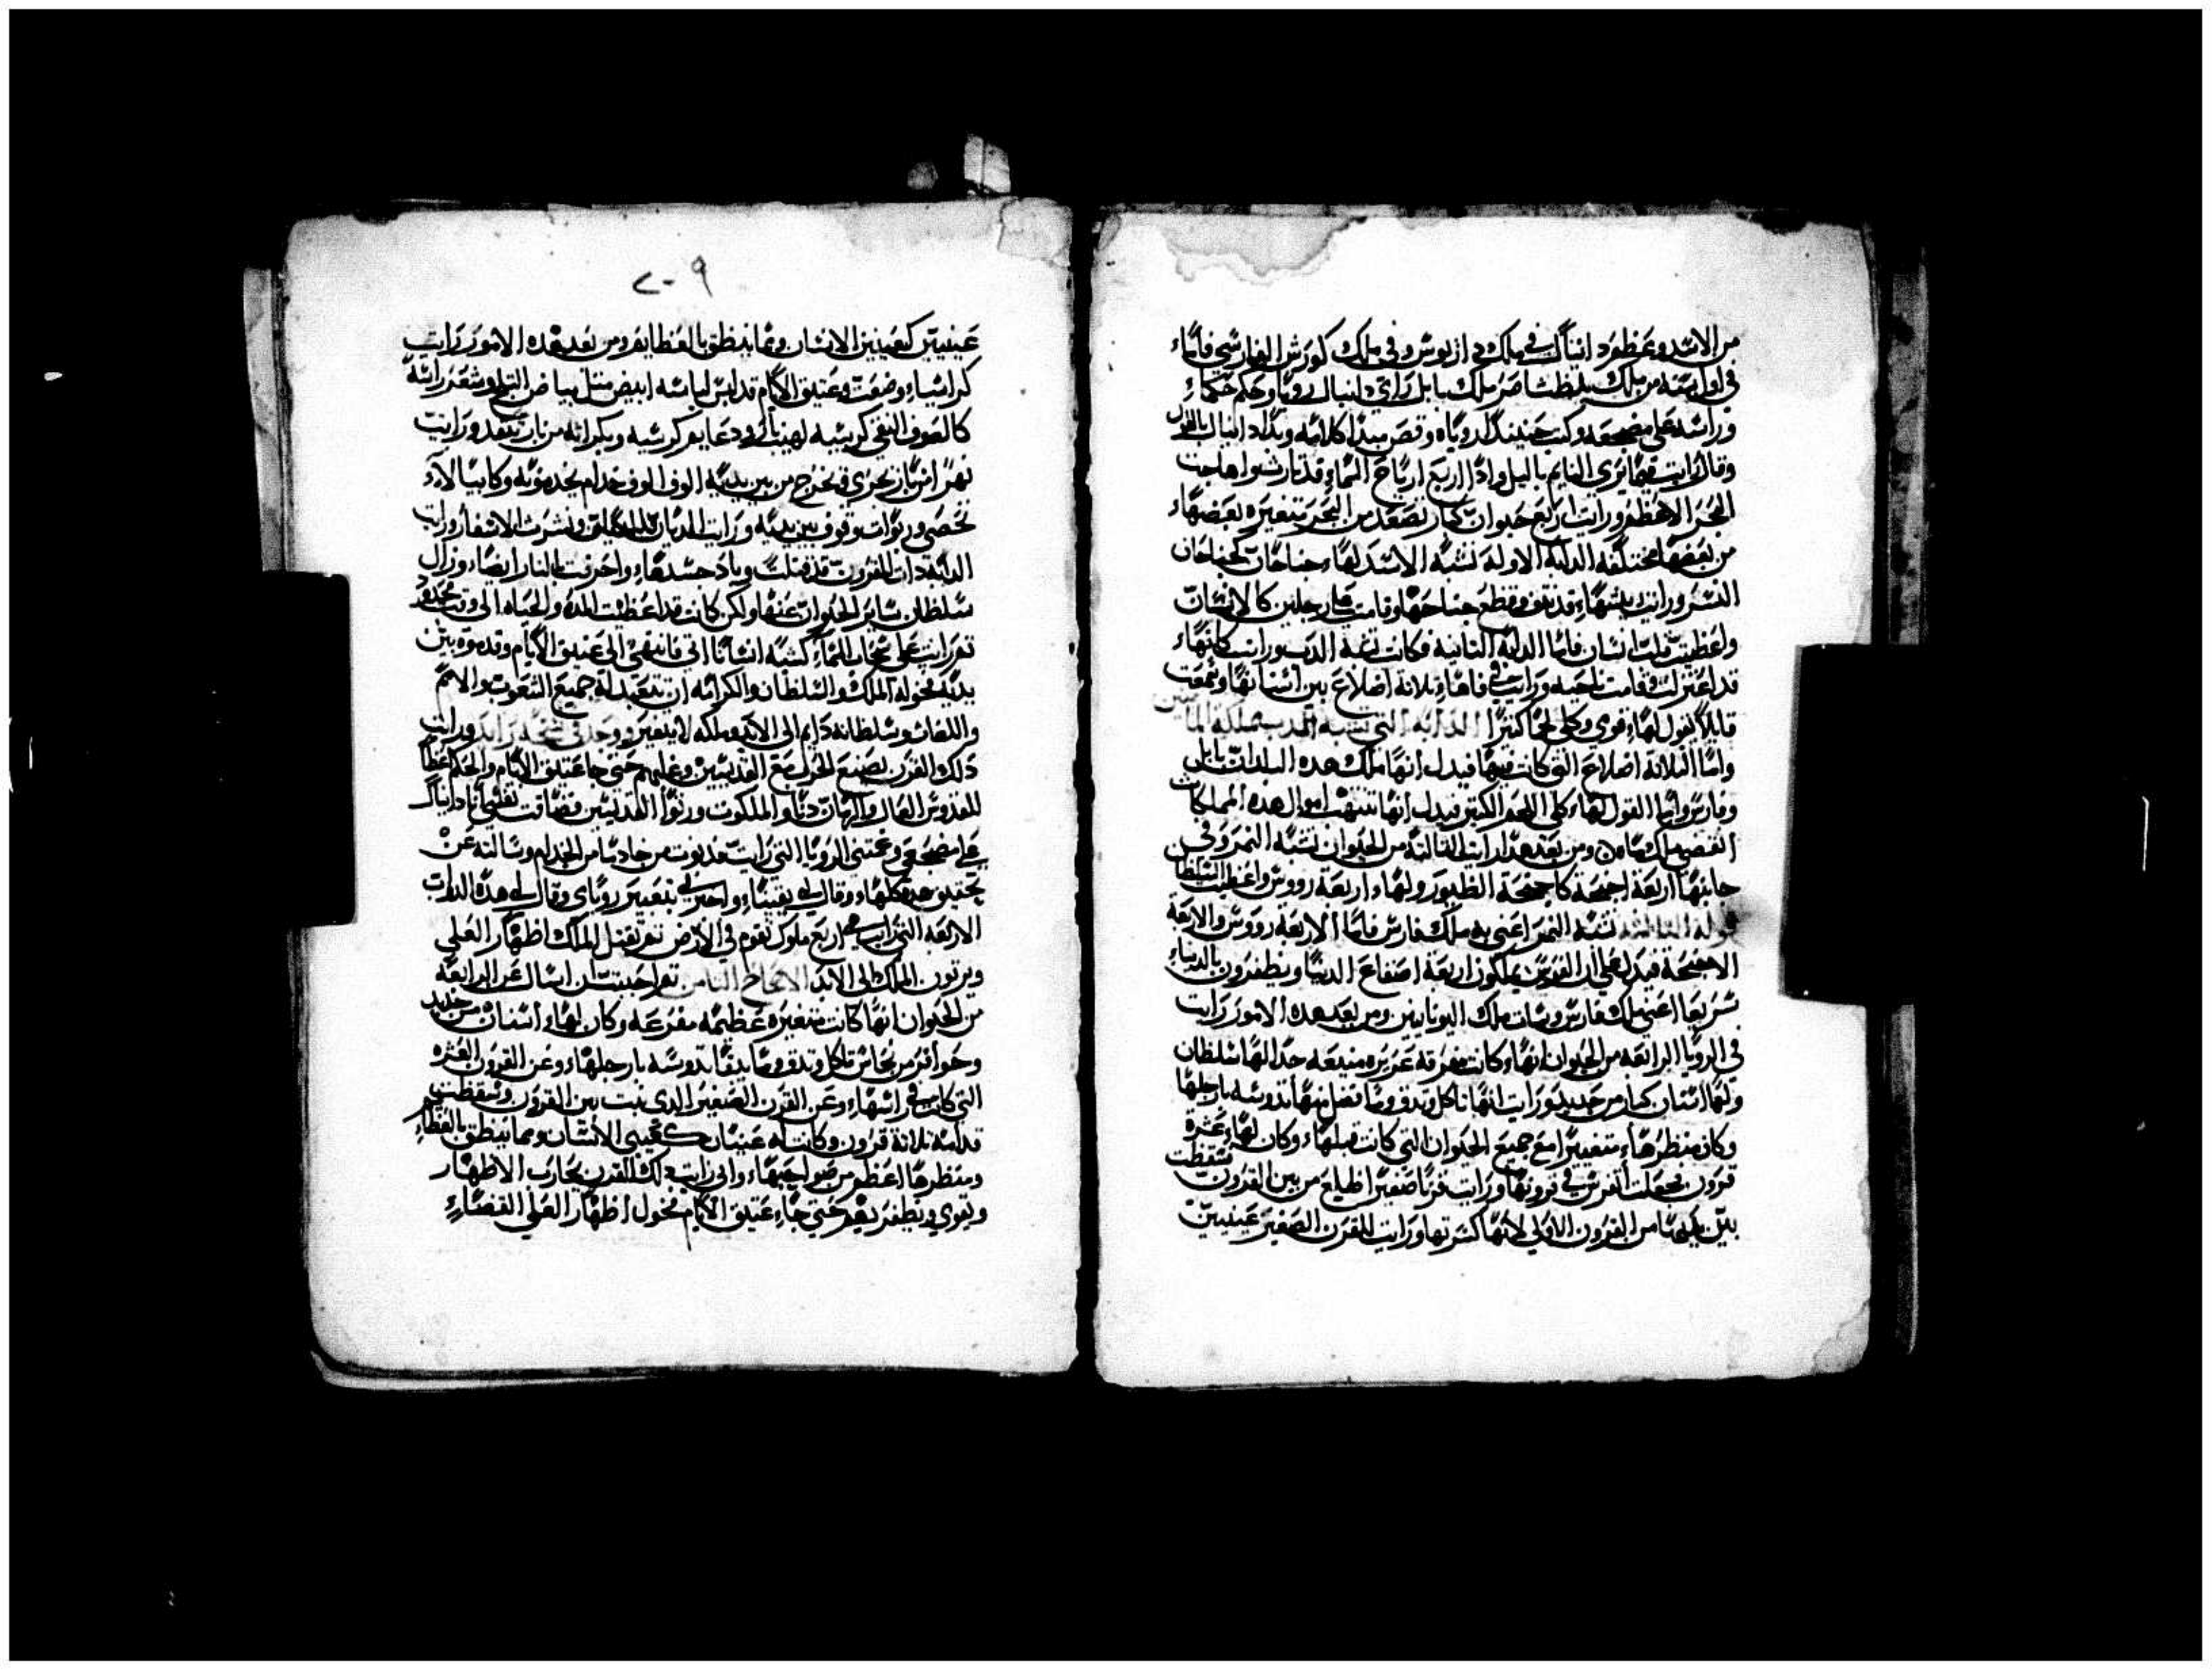 من الاسد وعظم دانيال في ملك داريوش وفي ملك كورش الفارسي فاما
في اول سنه من ملك بلطشاصر ملك بابل راي دانيال رويا وحلم حلما
وراسه على مضجعه وكتب حينيد الرويا وقص مبدا كلامه وبدا دانيال بالقول
وقال رايت فيما يري النايم بالليل وادا اربع ارياح السماء قد ثارت وهاجت
البحر الاعظم ورايت اربع حيوان كبار تصعد من البحر متغيره بعضها
من بعضها مختلفه الدابه الاوله تشبه الاسد لها جناحان كجناحان
النسر ورايت ريشها قد نتف وقطع جناحها وقامت على رجلين كالانسان
واعطيت قلب انسان فاما الدابه الثانيه فكانت تشبه الدب ورايت كانها
قد اعتزلت وقامت ناحيه ورايت في فاها ثلاثة اضلاع بين اسنانها وسمعت
قايلا يقول لها قومي وكلي لحما كثيرا الدابه التي تشبه الدب مملكة
واما الثلاثة اضلاع التي كانت فيها فيدل انها ملك هده البلدات بابل
وفارس واما القول لها كلي اللحم الكثير فيدل انها تنتهب اموال هده المملكات
ومن بعد هدا رايت الثالثة من الحيوان تشبه النمر وفي
جانبها اربعة اجنحة كاجنحة الطيور ولها اربعة رووس واعطيت السلطان
قوله الثالثة تشبه النمر اعني به ملك فارس فاما الاربعة رووس والاربعة
الاجنحة فيدل على ان الفرس يملكون اربعة اصقاع الدنيا ويظفرون بالدنيا
سريعا اعني ملك فارس ملك اليونانيين ومن بعد هده الامور رايت
في الرويا الرابعه من الحيوان انها كانت مفزعه عزيزه منيعه جدا لها سلطان
ولها اسنان كبار من حديد ورايت انها تاكل وتدق وما فضل منها تدوسه بارجلها
وكان منظرها متغيرا مع جميع الحيوان التي كانت قبلها وكان لها عشرة
قرون فجعلت اتفرس في قرونها ورايت قرنا صغيرا طلع من بين القرون وسقطت
بين يديها من القرون الاولي لانها كسرتها ورايت للقرن الصغير عينين
٢٠٩
عينين كعينين الانسان وفما ينطق بالعظايم ومن بعد هده الامور رايت
كراسيا وضعت وعتيق الايام قد لبس لباسه ابيض مثل بياض الثلج وشعر راسه
كالصوف النقي كرسيه لهيب نار ودعايم كرسيه وبكراته من نار تتقد ورايت
نهرا من نار تجري وتخرج من بين يديه الوف الوف خدام يخدمونه وكانيا لا
تحصى وربوات وقوف بين يديه ورايت الديان قد جلس ونشرت الاسفار ورايت
الدابة دات القرون قد قتلت وباد جسدها واحرقت بالنار ايضا وزال
سلطان ساير الحيوان عنها ولكن كانت قد اعطيت المده والحياه الى وقت محدود
ثم رايت على سحاب السماء كشبه انسانا اتي فانتهى الى عتيق الايام وقدموه بين
يديه فخوله الملك والسلطان والكرامه ان تتعبد له جميع الشعوب والامم
واللغات وسلطانه دايم الى الابد وملكه لا يتغير ورايت
دلك القرن يصنع الحرب مع القديسين وغلبهم حتى جا عتيق الايام والحكم اعطا
للقدوس العال والزمان دنا والملكوت ورثوا القديسين فضاقت نفسي انا دانيال
على مضجعي وغمتني الرويا التي رايت فدنوت من خادما من الخدام وسالته عن
تحقيق هده كلها وقال لي يقينا واخبرني بتفسير روياي وقال لي هده الدواب
الاربعه التي رايت هي اربع ملوك تقوم في الارض ثم يقتبل الملك اظهار العلي
ويرثون الملك الى الابد الاصحاح الثامن ثم احببت ان اسال عن الرابعة
من الحيوان انها كانت متغيره عظيمه مفزعه وكان لها اسنان من حديد
وحوافر من نحاس تاكل وتدق وما بقا تدوسه بارجلها وعن القرون العشره
التي كانت في راسها وعن القرن الصغير الدي نبت بين القرون وسقطت
قدامه ثلاثة قرون وكانت له عينان كعيني الانسان وفما ينطق بالعظايم
ومنظرها اعظم من صواحبها واني رايت دلك القرن يحارب الاطهار
ويقوي ويظفر بهم حتى جاء عتيق الايام فخول اظهار العلي القضاء